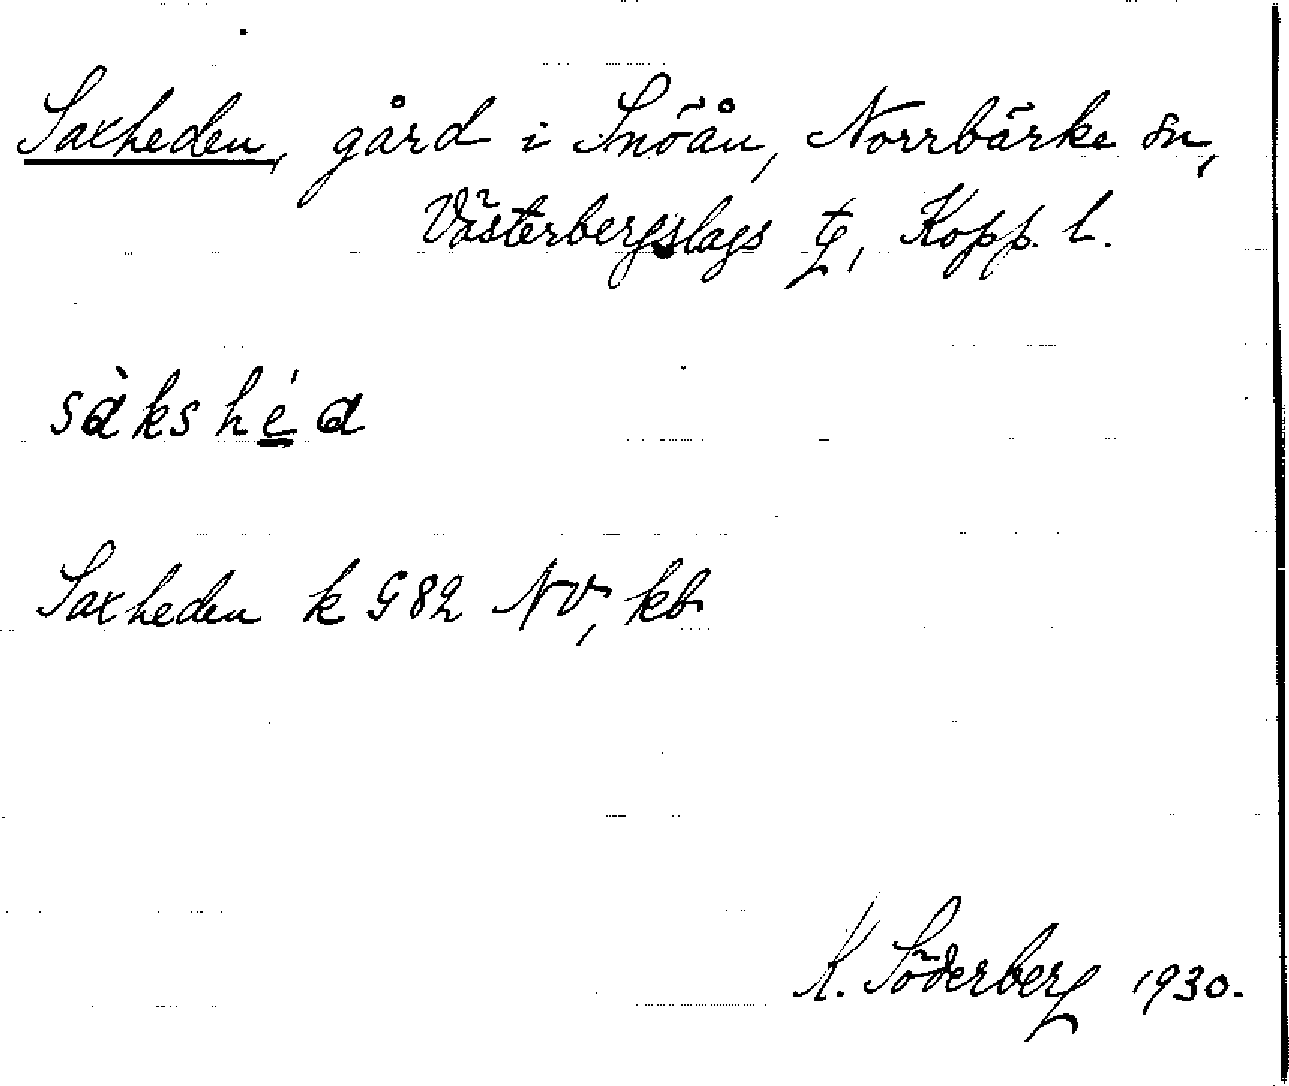 Saxheden, gård i Snöån, Norrbärke sn,
Västerbergslags tg, Kopp. l.
sàkshéa
Saxheden k G82 NV, kb
K. Söderberg 1930.